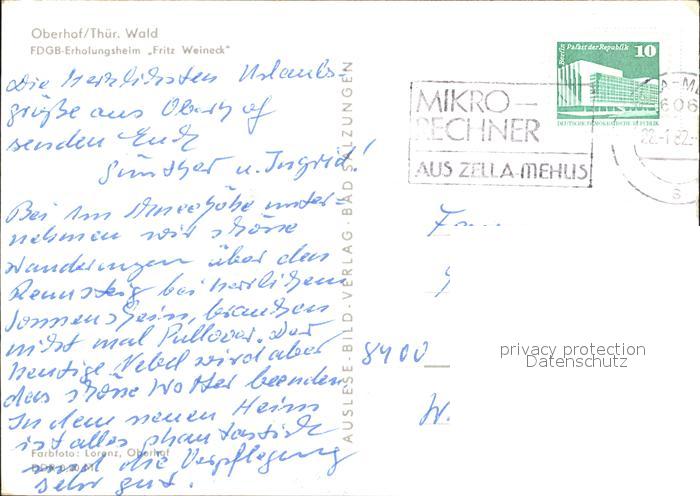 Oberhof/Thür. Wald
FDGB-Erholungsheim „Fritz Weineck"
Die herzlichsten Urlaubs-
grüße aus Oberhof
senden Euch
Günther u. Ingrid!
Bei 1m Schneehöhe unter-
nehmen wir schöne
Wanderungen über den
Rennsteig bei herrlichem
Sonnenschein, brauchen
nicht mal Pullover. Der
heutige Nebel wird aber
das schöne Wetter beenden
In dem neuen Heim
ist alles phantastisch
und die Verpflegung
sehr gut.
Farbfoto: Lorenz, Oberhof
AUSLESE-BILD-VERLAG·BAD SALZUNGEN
Berlin Palast der Republik 10
DEUTSCHE DEMOKRATISCHE REPUBLIK
MIKRO-
RECHNER
AUS ZELLA-MEHLIS
606
22.-1.82-
8400
W.
privacy protection
Datenschutz